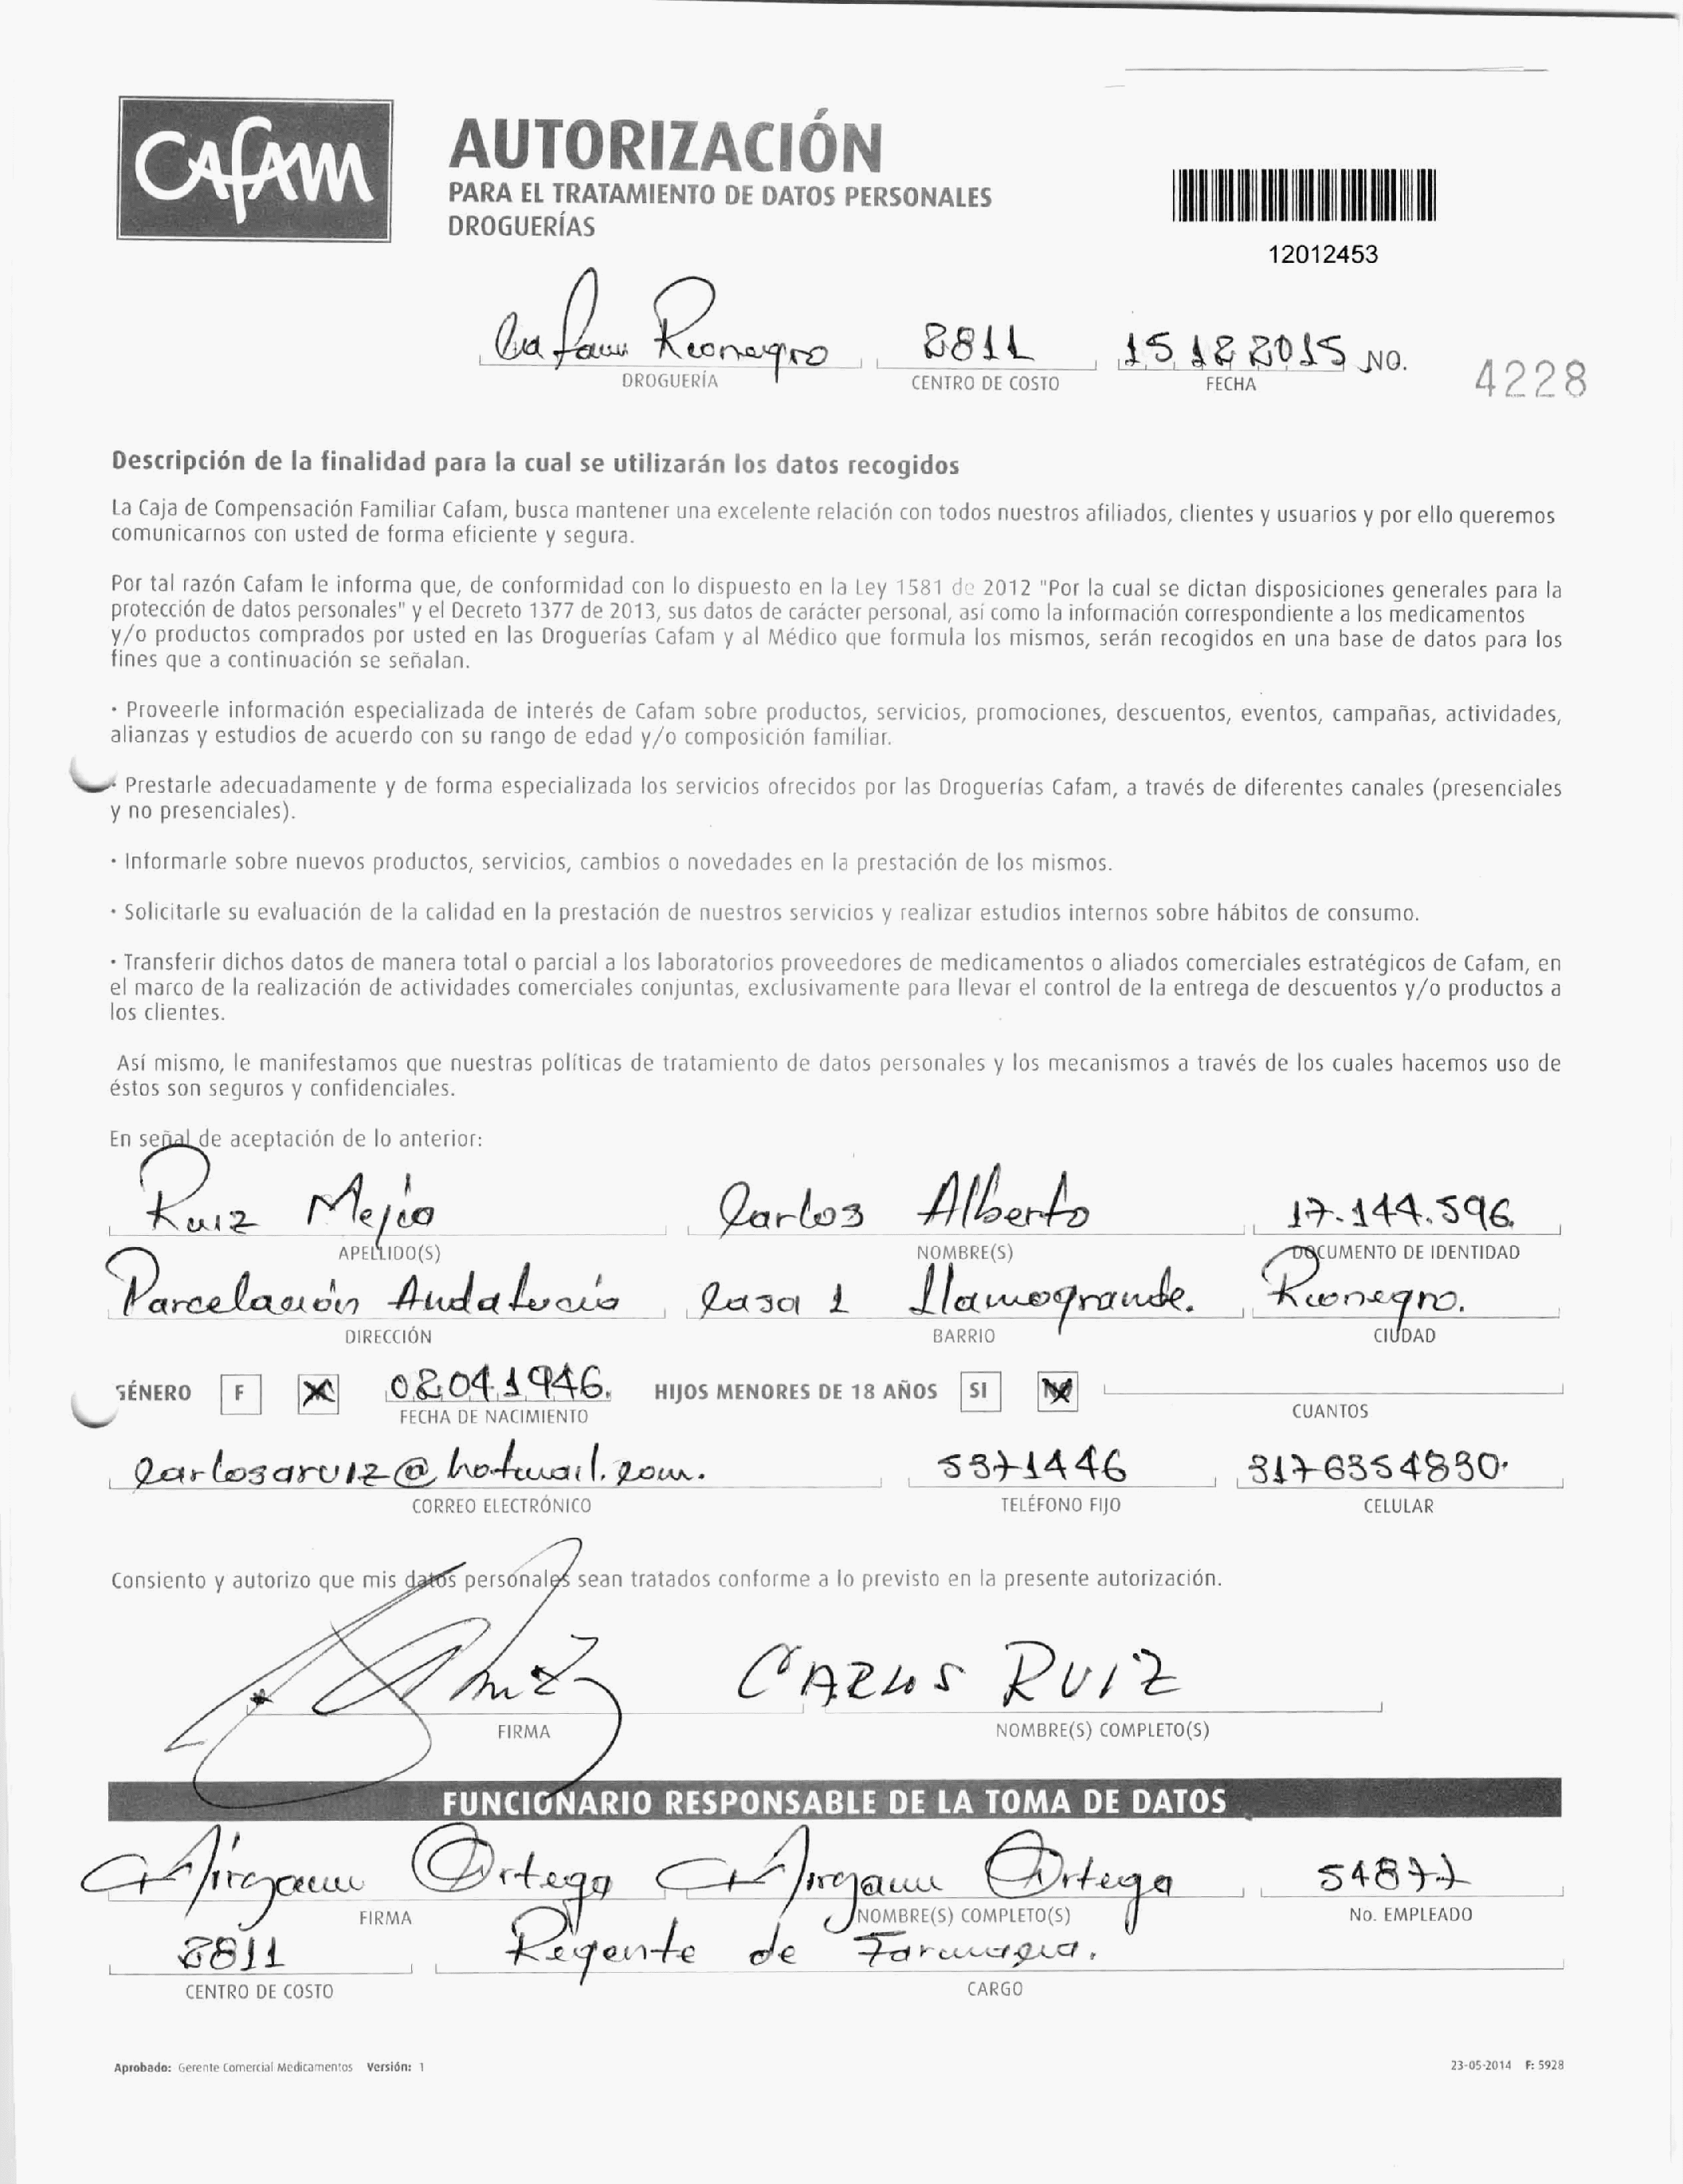 CAFAM
AUTORIZACIÓN
PARA EL TRATAMIENTO DE DATOS PERSONALES
DROGUERÍAS
12012453
Cafam Rionegro 8811 15 12 2015 NO. 4228
DROGUERÍA CENTRO DE COSTO FECHA
Descripción de la finalidad para la cual se utilizarán los datos recogidos
La Caja de Compensación Familiar Cafam, busca mantener una excelente relación con todos nuestros afiliados, clientes y usuarios y por ello queremos
comunicarnos con usted de forma eficiente y segura.
Por tal razón Cafam le informa que, de conformidad con lo dispuesto en la Ley 1581 de 2012 "Por la cual se dictan disposiciones generales para la
protección de datos personales" y el Decreto 1377 de 2013, sus datos de carácter personal, así como la información correspondiente a los medicamentos
y/o productos comprados por usted en las Droguerías Cafam y al Médico que formula los mismos, serán recogidos en una base de datos para los
fines que a continuación se señalan.
· Proveerle información especializada de interés de Cafam sobre productos, servicios, promociones, descuentos, eventos, campañas, actividades,
alianzas y estudios de acuerdo con su rango de edad y/o composición familiar.
· Prestarle adecuadamente y de forma especializada los servicios ofrecidos por las Droguerías Cafam, a través de diferentes canales (presenciales
y no presenciales).
· Informarle sobre nuevos productos, servicios, cambios o novedades en la prestación de los mismos.
· Solicitarle su evaluación de la calidad en la prestación de nuestros servicios y realizar estudios internos sobre hábitos de consumo.
· Transferir dichos datos de manera total o parcial a los laboratorios proveedores de medicamentos o aliados comerciales estratégicos de Cafam, en
el marco de la realización de actividades comerciales conjuntas, exclusivamente para llevar el control de la entrega de descuentos y/o productos a
los clientes.
Así mismo, le manifestamos que nuestras políticas de tratamiento de datos personales y los mecanismos a través de los cuales hacemos uso de
éstos son seguros y confidenciales.
En señal de aceptación de lo anterior:
Ruiz Mejía Carlos Alberto 17.144.596.
APELLIDO(S) NOMBRE(S) DOCUMENTO DE IDENTIDAD
Parcelación Andalucía Casa 1 Llanogrande. Rionegro.
DIRECCIÓN BARRIO CIUDAD
GÉNERO F 02.04.1946. HIJOS MENORES DE 18 AÑOS SI NO
FECHA DE NACIMIENTO CUANTOS
carlosaruiz@hotmail.com. 5371446 3176354830.
CORREO ELECTRÓNICO TELÉFONO FIJO CELULAR
Consiento y autorizo que mis datos personales sean tratados conforme a lo previsto en la presente autorización.
Ruiz CARLOS RUIZ
FIRMA NOMBRE(S) COMPLETO(S)
FUNCIONARIO RESPONSABLE DE LA TOMA DE DATOS
Ortega Ortega 54877
FIRMA NOMBRE(S) COMPLETO(S) No. EMPLEADO
8811 Regente de Farmacia.
CENTRO DE COSTO CARGO
Aprobado: Gerente Comercial Medicamentos Versión: 1 23-05-2014 F: 5928